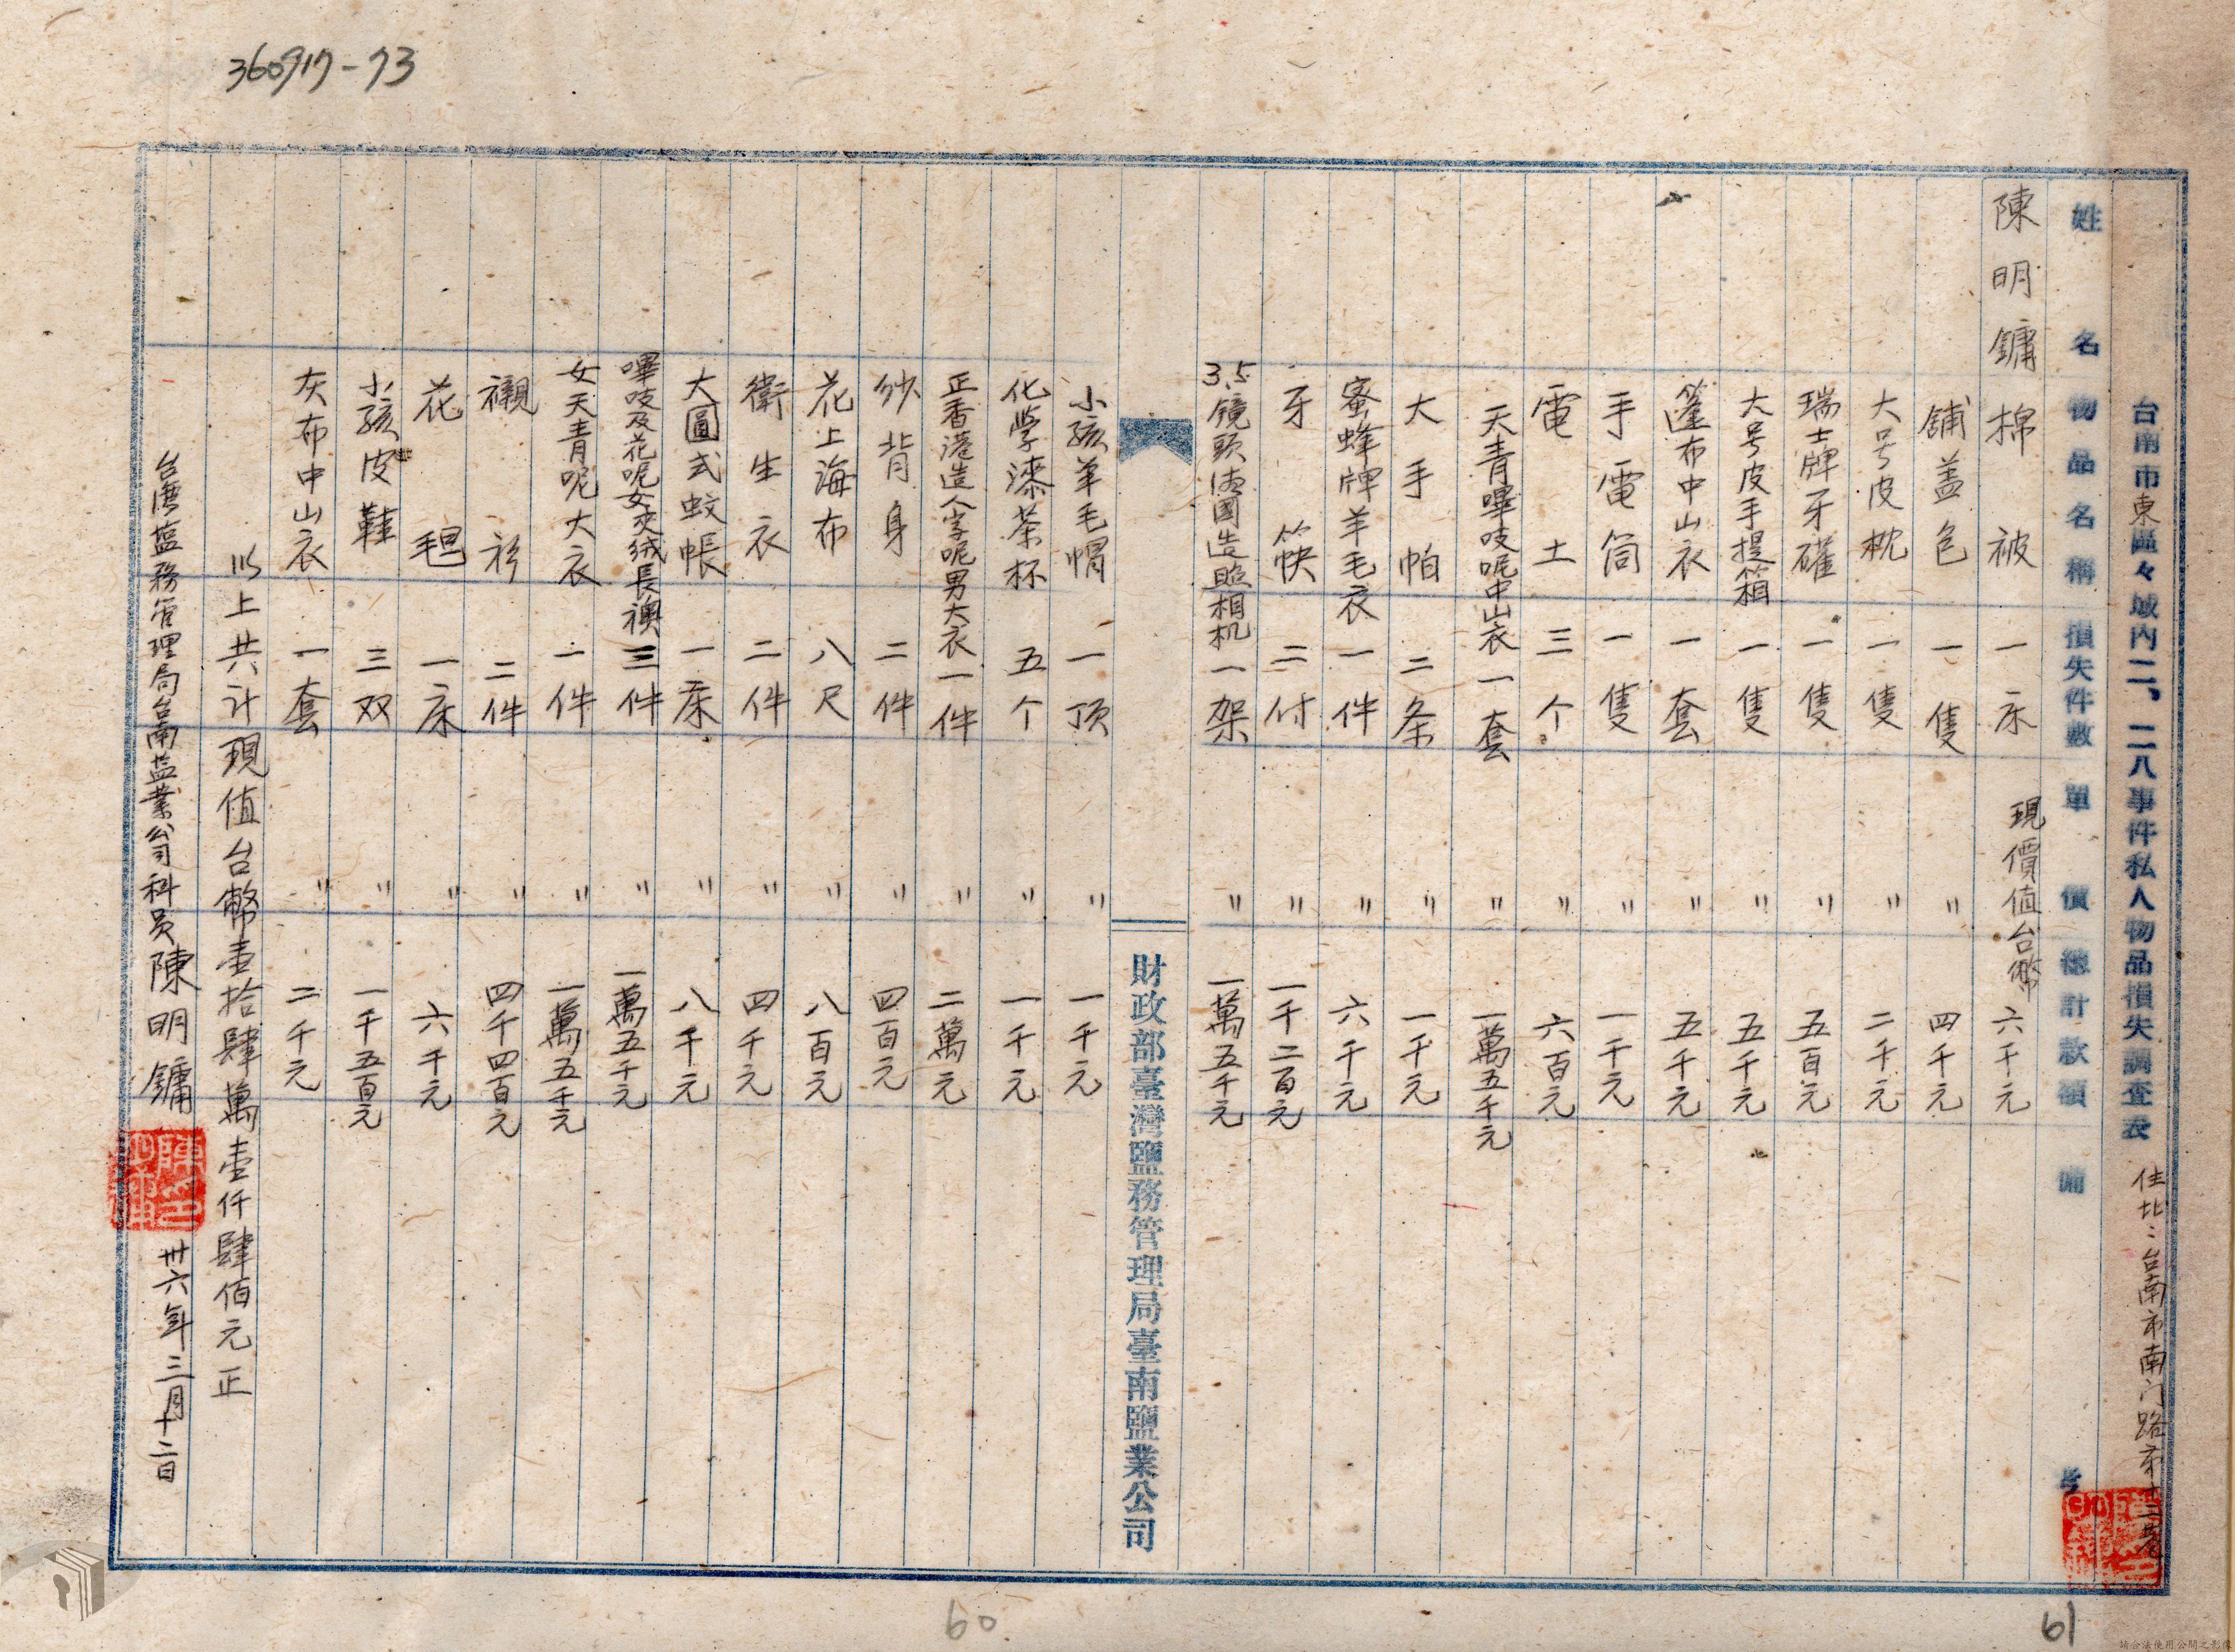 360917-73
台南市東區々域內二、二八事件私人物品損失調查表 住址:台南市南门路
姓名 物品名稱 損失件數 單價 總計款額 備考
陳明鏞 棉被 一床 現價值台幣 六千元
舖盖包 一隻 〃 四千元
大号皮枕 一隻 〃 二千元
瑞士牌牙碓 一隻 〃 五百元
大号皮手提箱 一隻 〃 五千元
篷布中山衣 一套 〃 五千元
手電筒 一隻 〃 一千元
電土 三个 〃 六百元
天青嗶吱呢中山衣 一套 〃 一萬五千元
大手帕 二条 〃 一千元
蜜蜂牌羊毛衣 一件 〃 六千元
牙筷 二付 〃 一千二百元
3.5镜頭法國造照相机 一架 〃 一萬五千元
財政部臺灣鹽務管理局臺南鹽業公司
小孩羊毛帽 一顶 〃 一千元
化學漆茶杯 五个 〃 一千元
正香港造人字呢男大衣 一件 〃 二萬元
紗背身 二件 〃 四百元
花上海布 八尺 〃 八百元
衛生衣 二件 〃 四千元
大圓式蚊帳 一床 〃 八千元
嗶吱及花呢女夾绒長襖 三件 〃 一萬五千元
女天青呢大衣 一件 〃 一萬五千元
襯衫 二件 〃 四千四百元
花毯 一床 〃 六千元
小孩皮鞋 三双 〃 一千五百元
灰布中山衣 一套 〃 二千元
以上共计現值台幣壹拾肆萬壹仟肆佰元正
台湾盐務管理局台南盐業公司科员陳明鏞 卅六年三月十二日
60
61
請合法使用公開之影像